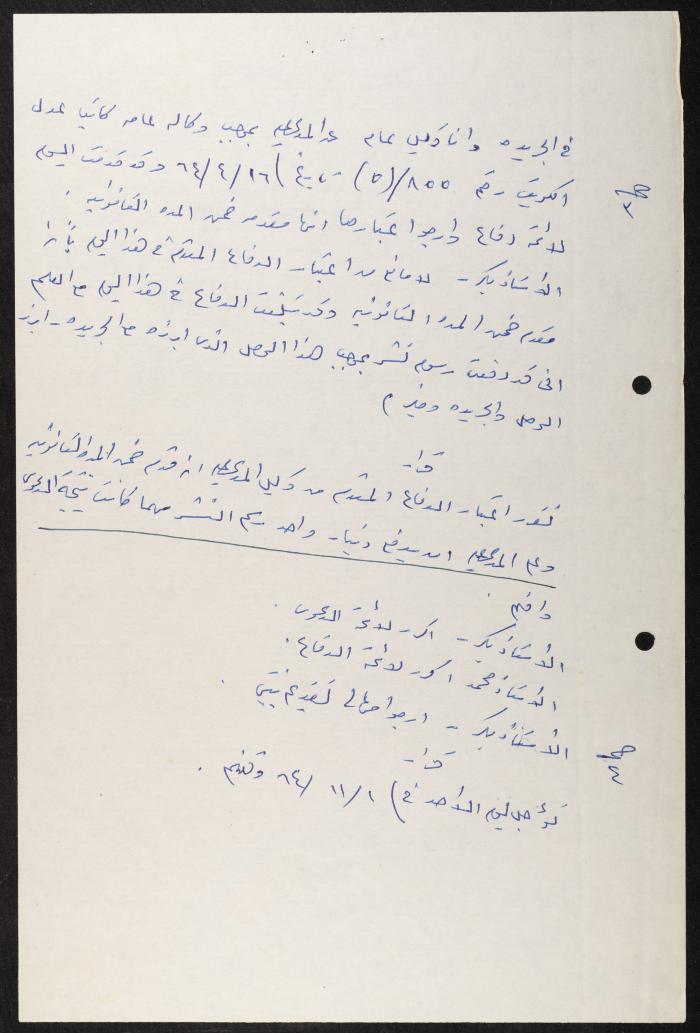 في الجريده وانا وكيل عام عن المدعى عليه بموجب وكاله عامه كاتب عدل
الكويت رقم ٨٥٥/(٥) تاريخ ٢٦/٤/٦٤ وقد قدمت اليوم
لائحة دفاع وارجو اعتبارها انها مقدمه ضمن المده القانونيه .
الأستاذ بكر - لا مانع من اعتبار الدفاع المقدم في هذا اليوم بأنه
مقدم ضمن المده القانونيه وقد تبلغت الدفاع في هذا اليوم مع العلم
اني قد دفعت رسوم نشر بموجب هذا الوصل الذي ابرزه مع الجريده - ابرز
الوصل والجريده وميز م
قرار
نقرر اعتبار الدفاع المقدم من وكيل المدعى عليه انه قدم ضمن المده القانونيه
وعلى المدعى عليه ان يدفع دينار واحد رسم النشر مهما كانت نتيجة الدعوى
وافهم .
الأستاذ بكر - اكرر لائحة الدعوى .
الأستاذ محمد اكرر لائحة الدفاع .
الأستاذ بكر - ارجو امهالي لتقديم بينتي .
قرار
تؤجل ليوم الأحد في ١/١١/٦٤ وتفهم .